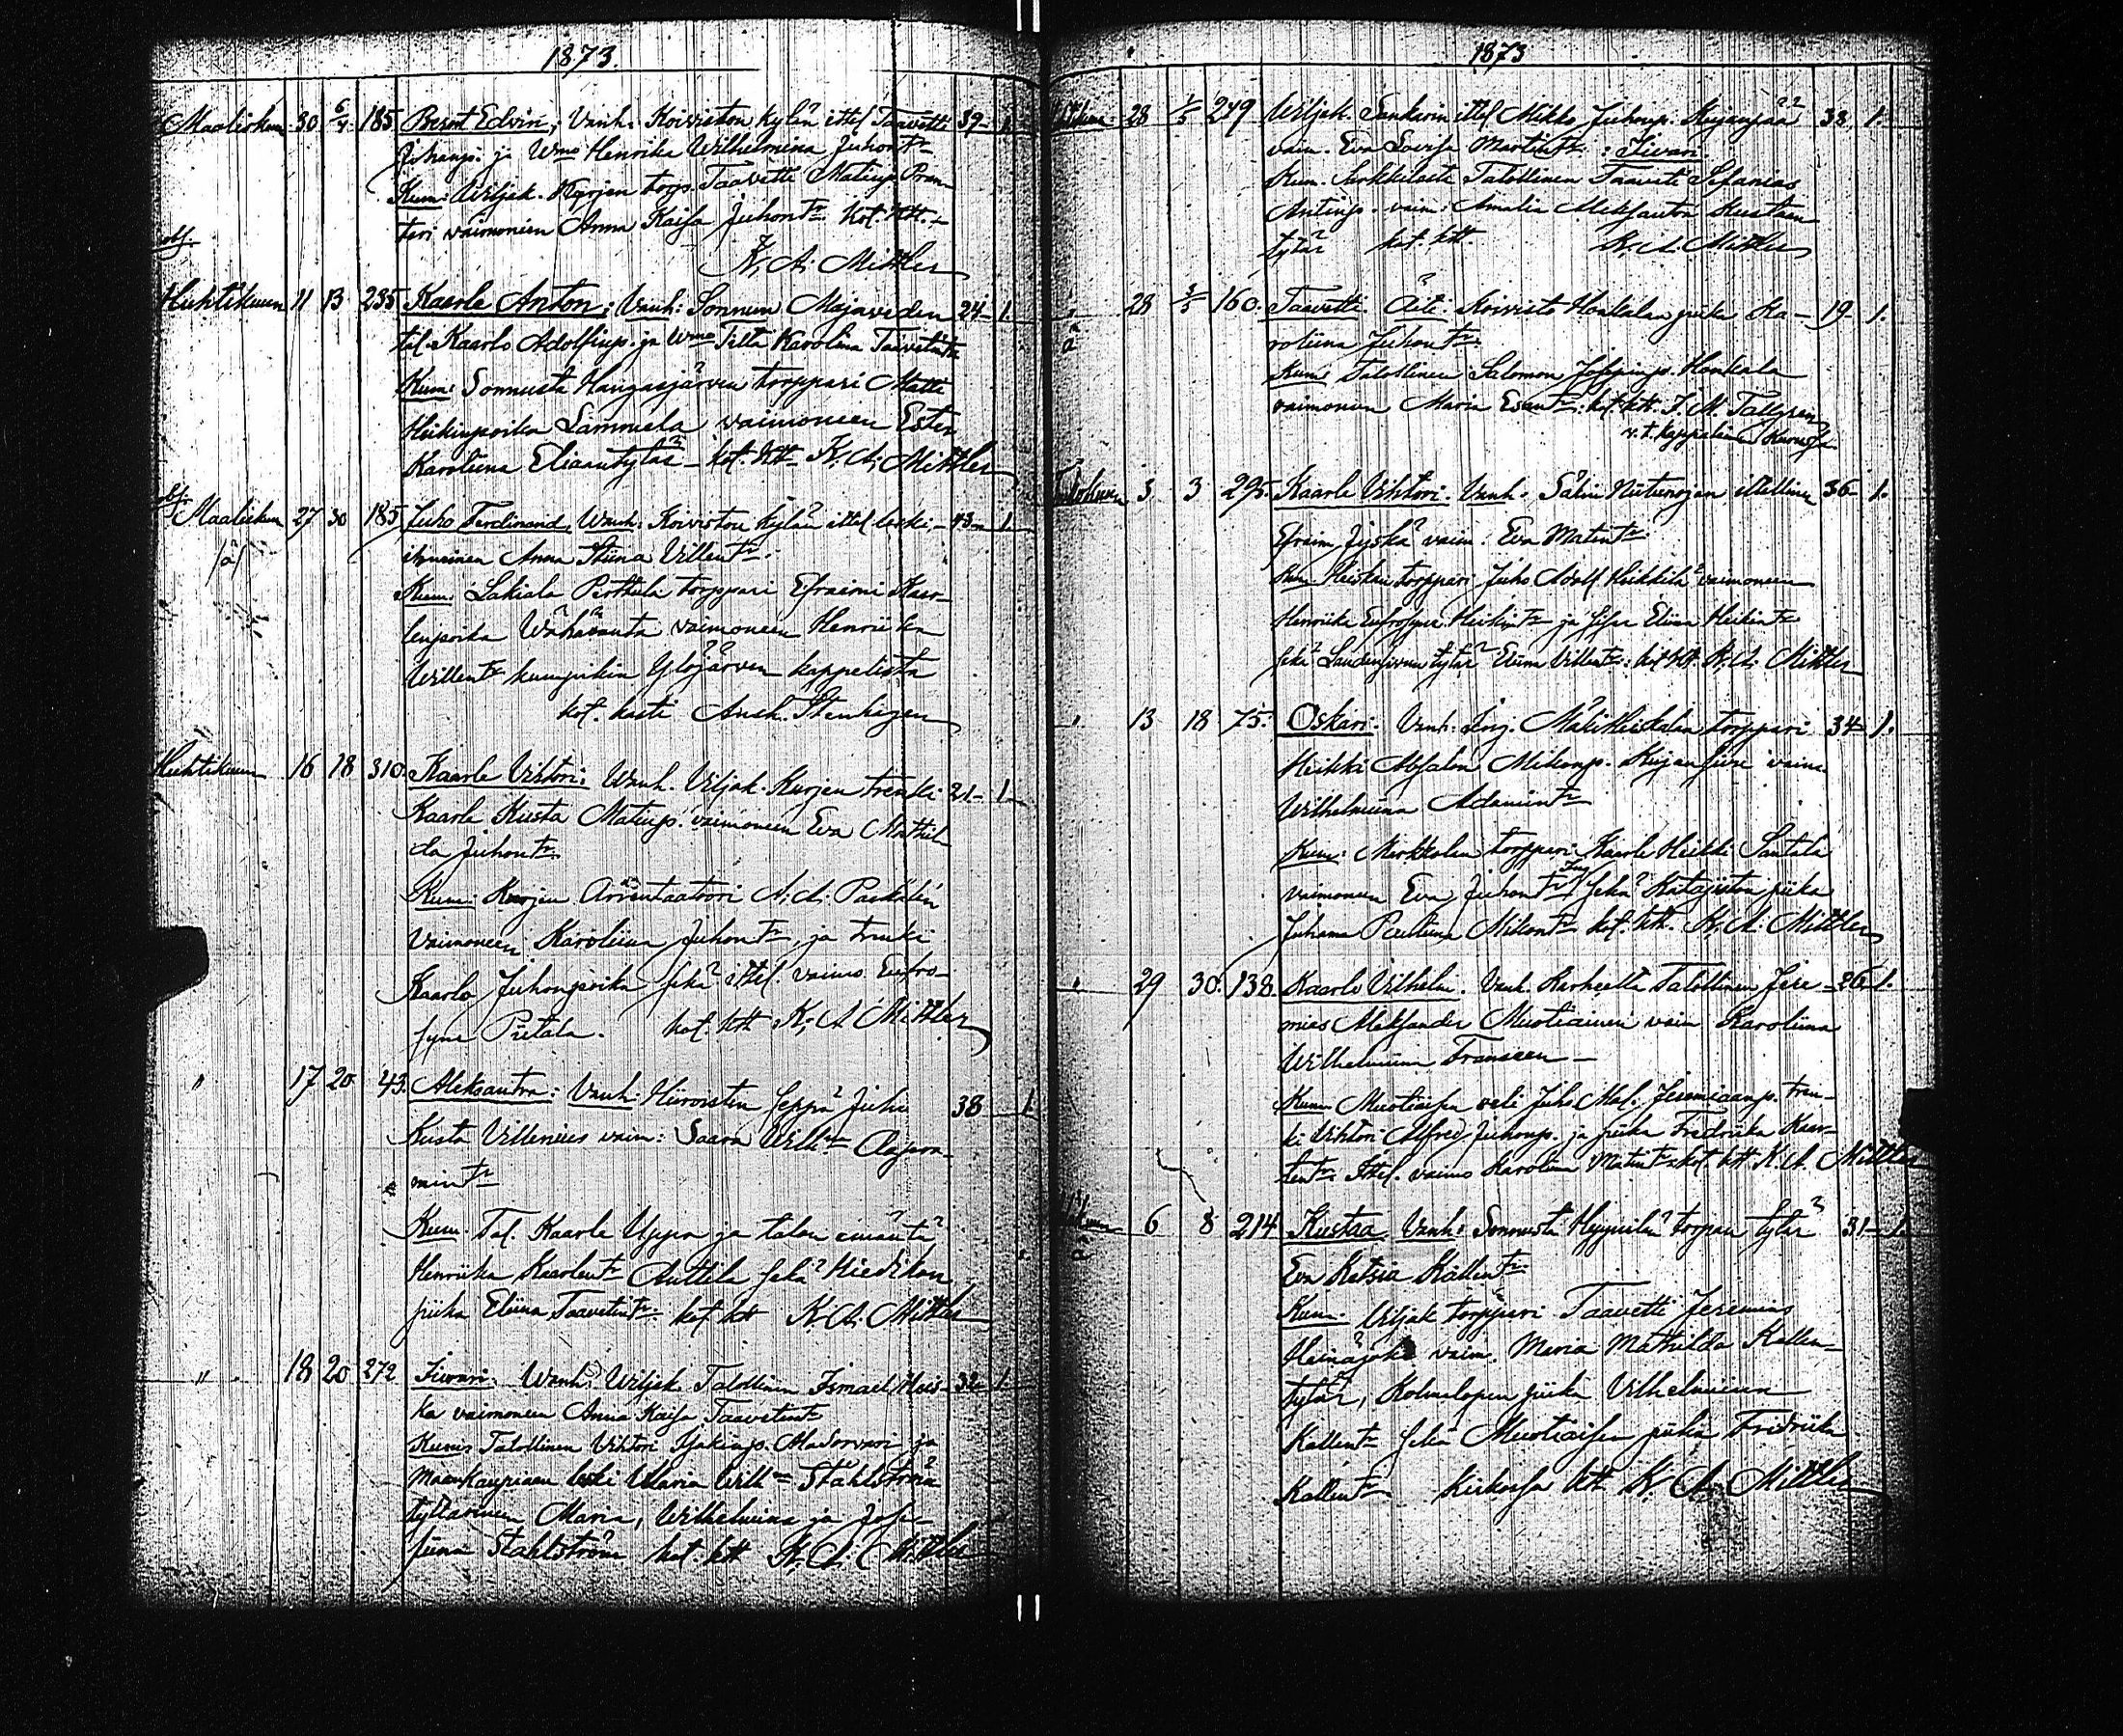 1873.
Maaliskuu 30 6/4 185 Bernt Edvin; Vanh. Koiviston kylän ittel Taavetti 39 1.
Juhanp. ja Wmo Henrika Wilhelmina Juhontr
Kum: Viljak. Kurjen torp. Taavetti Matinp.
vaimoneen Anna Kaisa Juhontr kot. ktt.
obs.
K. A. Mittler
Huhtikuun 11 13 235 Kaarle Anton; Vanh: Sonnun Majaveden 24 1.
tal. Kaarlo Adolfinp. ja Wmo Tilta Karolina Taavetintr
Kum: Sonnusta Hangasjärven torppari Matti
Heikinpoika Lammela vaimoneen Ester
Karoliina Eliaantytär kot. ktt K. A. Mittler
obs.
Maaliskuu 27 30 185 Juho Ferdinand, Vanh: Koiviston kylän ittel leski- 43 1.
/ä/ ihminen Anna Stiina Villentr.
Kum: Lakiala Perttula torppari Efraimi Kaar-
lenpoika Wähäsanta vaimoneen Henriika
Willentr kumpikin Ylöjärven kappelista
kot. kasti Ansh. Stenhagen
Huhtikuun 16 18 310. Kaarle Vihtori: Vanh. Viljak. Kurjen trenki 21 1.
Kaarle Kusta Matinp. vaimoneen Eva Mathil-
da Juhontr
Kum: Kurjen Arrentaatori A. A. Packalén
vaimoneen Karoliina Juhontr, ja trenki
Kaarlo Juhonpoika sekä ittel. vaimo Eufro-
syne Pietala. kot. ktt K. A Mittler
" 17 20 43. Aleksantra: Vanh: Hiiroisten seppä Juho 38 1.
Kusta Villenius vaim: Saara Wilhna
mintr
Kum. Tal. Kaarle Uppa ja talon emäntä
Henriika Kaarlentr Anttila sekä Hiedikon
piika Eliina Taavetintr. kot. ktt K. A. Mittler
" 18 20 272 Iivari. Vanh: Viljak. Talollinen Ismael Heis- 32 1.
ka vaimoneen Anna Kaisa Taavetintr
Kumis Talollinen Vihtori ja
maankaupiaan leski Maria Wilhna Ståhlström
tyttärineen Maria, Wilhelmina ja Jose-
fiina Ståhlström kot. ktt K. A. Mittler
1873
28 1/5 249 Viljak. Sankarin ittel Mikko Juhonp. Kujanpää 38. 1.
vaim. Eva Lovisa Martintr: Iivari
Kum. Talollinen Taaveti Sefanias
Antinp. vaim: Amalia Aleksantra Kustaan
tytär kot. ktt. K. A. Mittler
" 28 3/5 160. Taavetti. Äiti. Koivisto Honkalan piika Ka- 19 1.
ä roliina Juhontr.
Kum: Talollinen Salomon Josepinp. Honkala
vaimoneen Maria Esantr: kot. ktt. F. M. Tallgren
v.t. kappalainen Kurussa
Toukokuun 3 3 295. Kaarle Vihtori. Vanh. Sälin Niitunojan itellinen 36 1.
Efraim Jyskä vaim. Eva Matintr
Kum Heiskan torppari Juho Adolf Heikkilä vaimoneen
Henriika Eufrosyne Heikintr ja Eliina Heikintr
sekä tytär Eliina Villentr: kot. ktt. K. A. Mittler
" 13 18 75. Oskari. Vanh. Inj. torppari 34 1.
Heikki Absalon Mikonp. vaim.
Wilhelmiina Adamintr
Kum: Markkolan torppari Kaarle Heikki Santala
vaimoneen Eva Juhontr Inj sekä Katajiston piika
Juhana Pauliina Mikontr kot. ktt. K. A. Mittler
" 29 30. 138. Kaarle Vilhelm. Vanh. Karheella Talollinen Jere- 26 1.
mias Aleksander Muotiainen vaim Karoliina
Wilhelmiina Franseen
Kum Muotiaisen veli Juho Jeremiaanp. tren-
ki Vihtori Alfred Juhonp. ja piika Fredriika Kaar-
lentr. Ittel. vaimo Karolina Matintr kot. ktt K. A. Mittler
6 8 214 Kustaa, Vanh: Sonnusta Hyynilä torpan tytär 31 1.
ä Eva Kallentr
Kum. Viljak torppari Taavetti Jeremias
Heinäjoki vaim. Maria Mathilda Kallen-
tytär, Kolmilopen piika Vilhelmiina
Kallentr sekä Muotiaisen piika Fredriika
Kallentr. kirkossa ktt K. A. Mittler